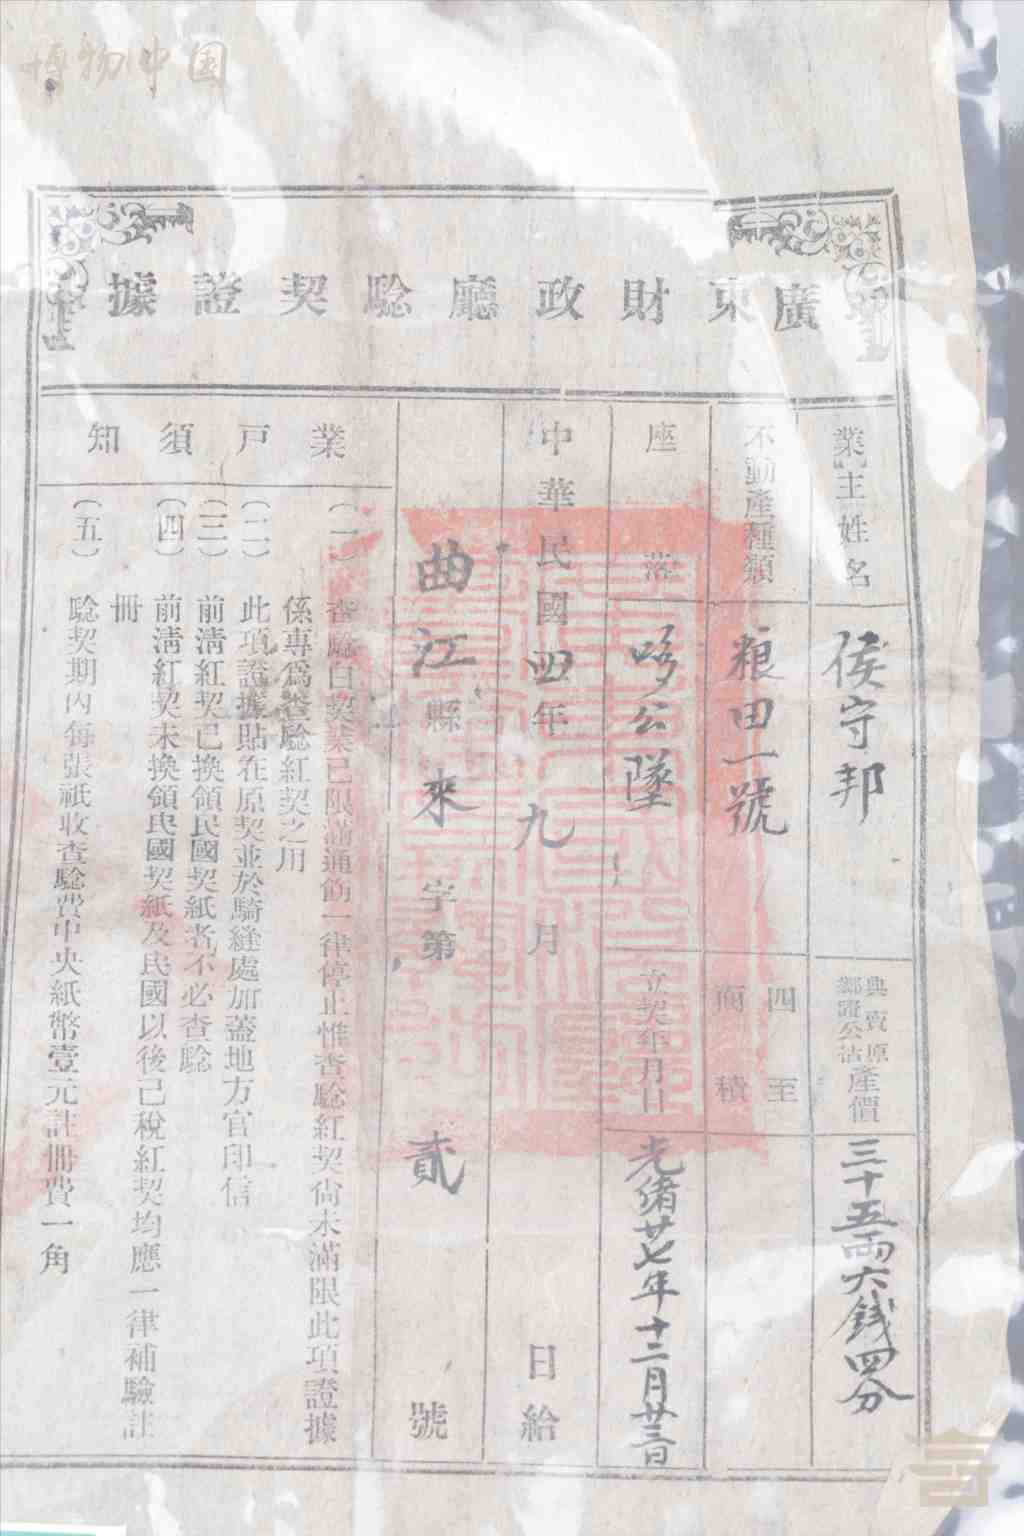 博物中国
廣東財政廳驗契證據
業主姓名
侯守邦
典賣原
鄰證公估
產價
三十五兩六錢四分
不動產種類
粮田一號
四至
面積
座落
公墜
立契年月日
光緒廿七年十二月廿三日
中華民國四年九月日給
曲江縣來字第貳號
業戶須知
(一)查驗白契業已限滿通飭一律停止惟查驗紅契尙未滿限此項證據
係專爲查驗紅契之用
(二)此項證據貼在原契並於騎縫處加蓋地方官印信
(三)前淸紅契已換領民國契紙者不必查驗
(四)前淸紅契未換領民國契紙及民國以後已稅紅契均應一律補驗註
冊
(五)驗契期內每張祇收查驗費中央紙幣壹元註冊費一角